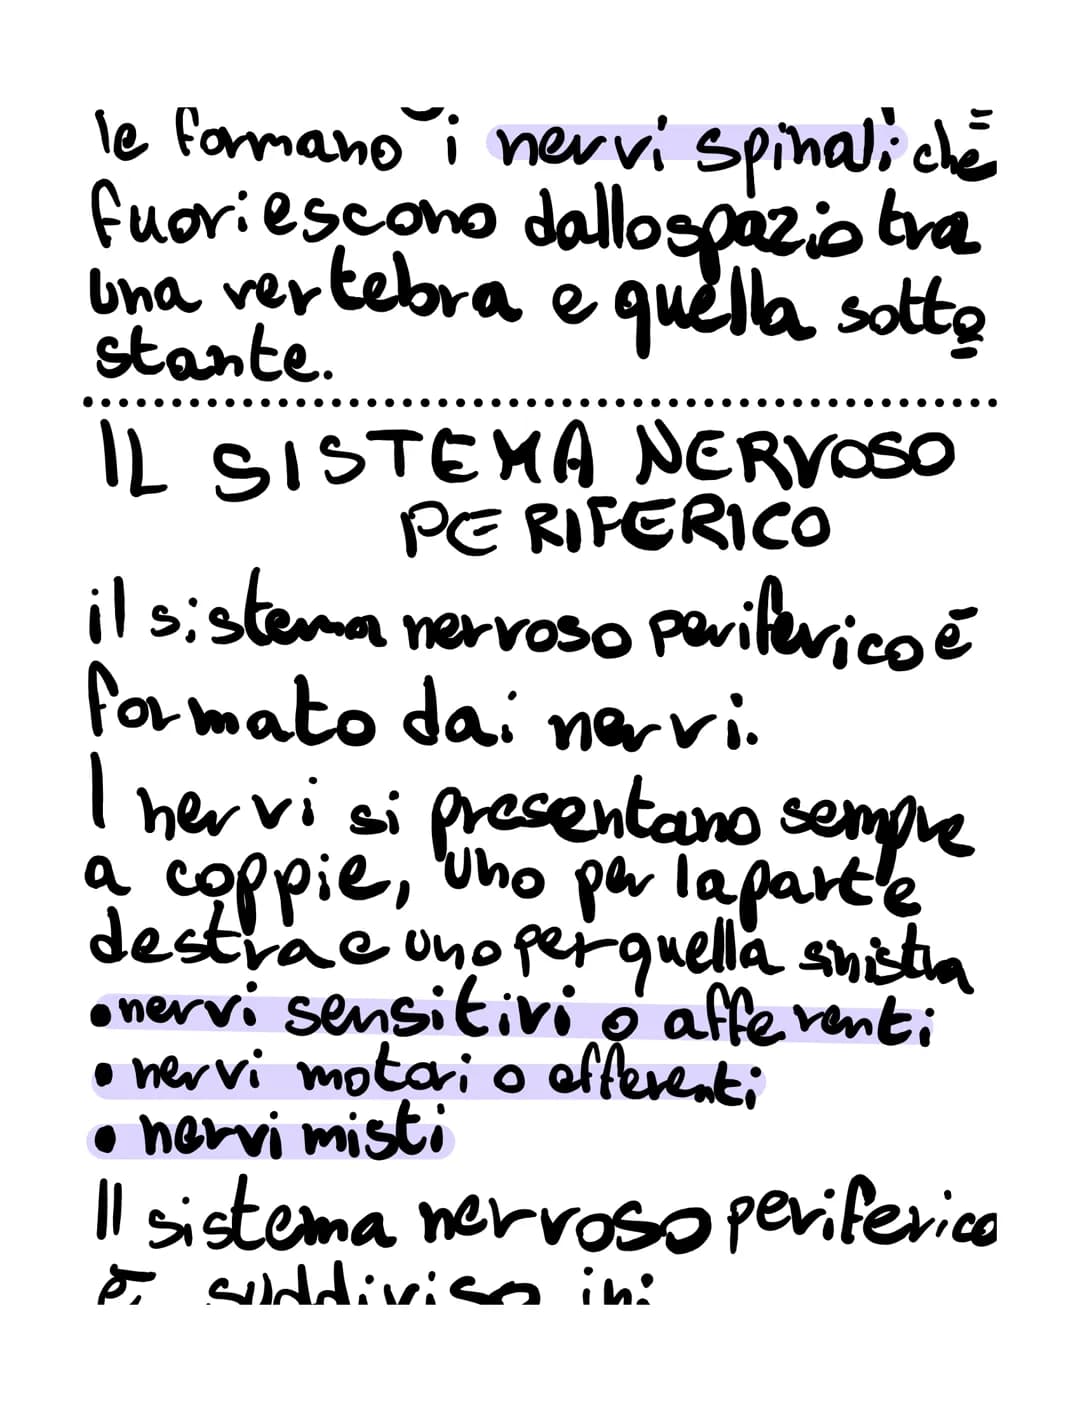 le formano i nervi spinali che
fuoriescono dallo spazio tra
una vertebra e quella sotto
stante.
IL SISTEMA NERVOSO
PERIFERICO
il sistema nervoso periferico è
formato dai nervi.
I nervi si presentano sempre
a coppie, uno per la parte
destra e uno per quella sinistra
• nervi sensitivi o afferenti
• nervi motori o efferenti
• nervi misti
Il sistema nervoso periferico
è suddiviso in: